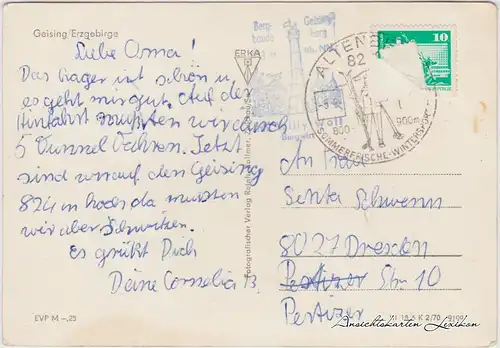 Geising/Erzgebirge
Liebe Oma!
Das Lager ist schön u.
es geht mir gut. Auf der
Hinfahrt mußten wir durch
5 Tunnel fahren. Jetzt
sind wir auf den Geising
824 m hoch da mußten
wir aber Schwitzen.
Es grüßt Dich
Deine Cornelia B.
EVP M -,25
ERKA
Fotografischer Verlag
Geising
ALTENB
82
800-
900m
SOMMERFRISCHE-WINTERSPORT
10
An Frau
Senta Schwenn
8027 Dresden
Pestizer Str. 10
Pestizer
K 2/70
Ansichtskarten Lexikon